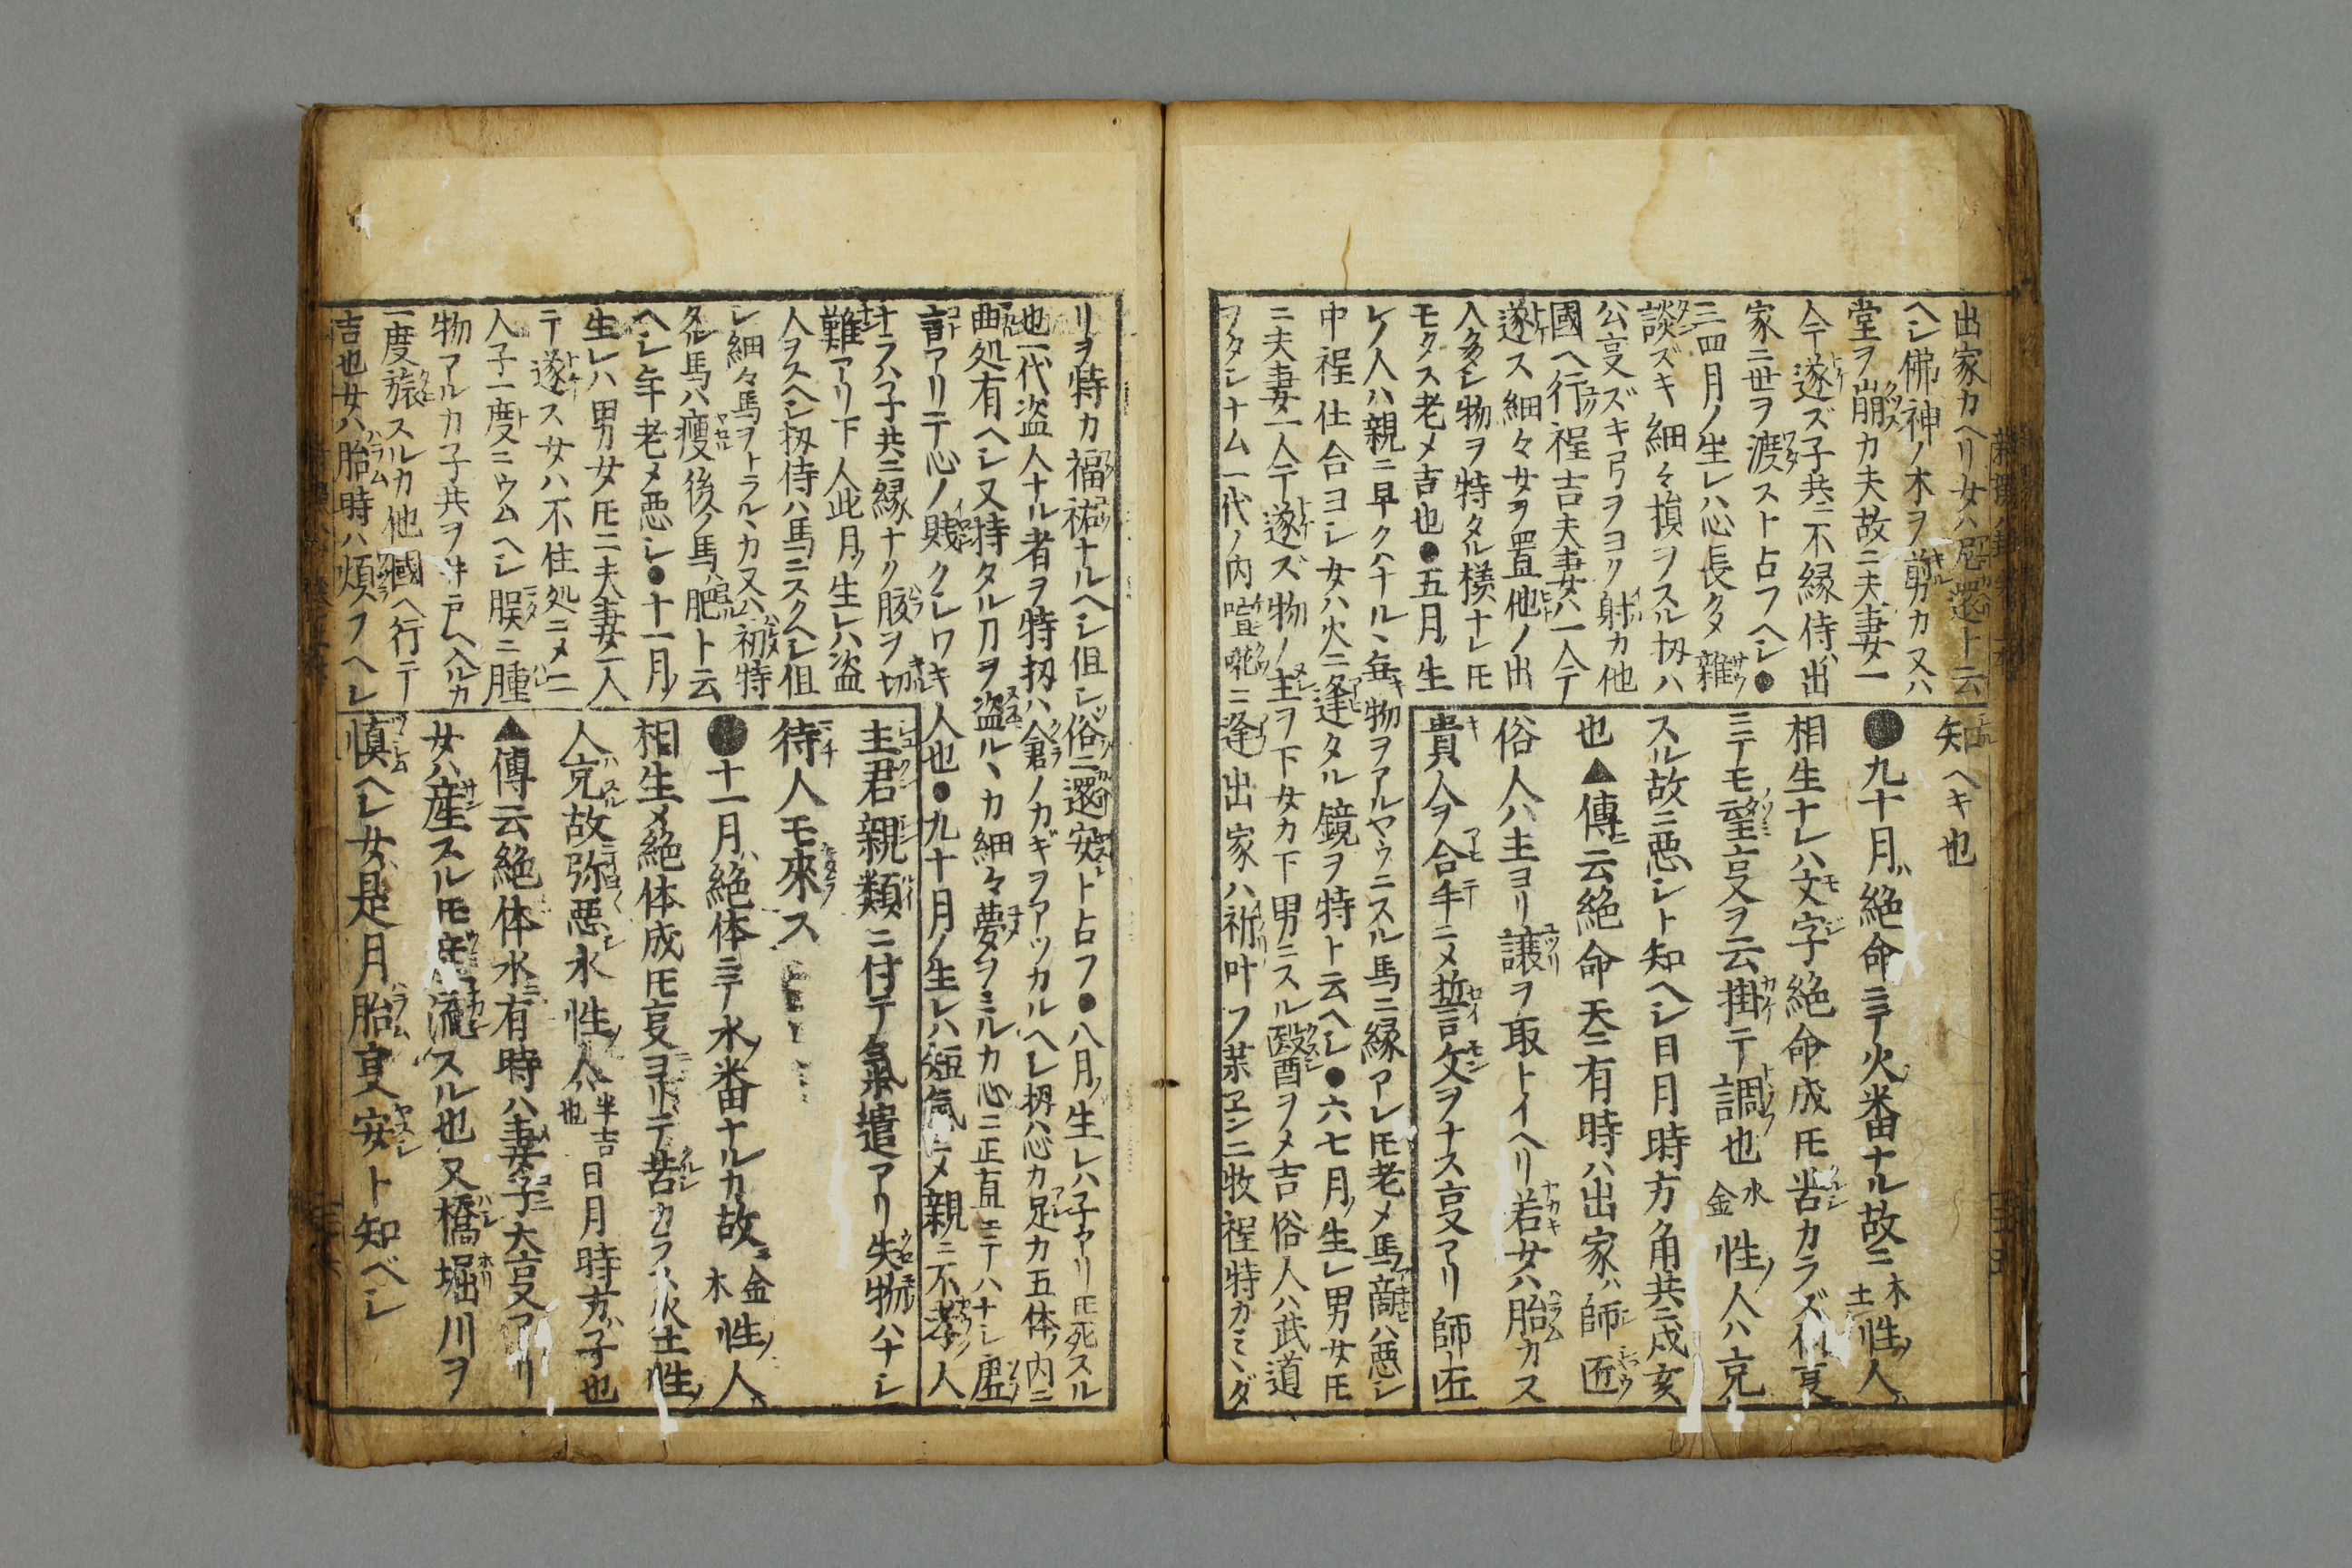 出家カヘリ女ハ尼還ト云
ヘシ佛神ノ木ヲ剪カ又ハ
堂ヲ崩カ夫故ニ夫妻一
人ニテ遂ズ子共ニ不縁侍ハ出
家ニ世ヲ渡スト占フヘシ●
三四月ノ生レハ心長クタ雑
談ズキ細々損ヲスル扨ハ
公事ズキ弓ヲヨク射カ他
國ヘ行程吉夫妻ハ一人ニテ
遂ス細々女ヲ置他ノ出
入多シ物ヲ特タル様ナレ𪜈
モタス老メ吉也●五月ノ生
レノ人ハ親ニ早クハナルヽ毎物ヲアルヤウニスル馬ニ縁アレ𪜈老メ馬敵ハ悪シ
中程仕合ヨシ女ハ火ニ逢タル鏡ヲ特ト云ヘシ●六七月ノ生レ男女𪜈
ニ夫妻一人ニテ遂ズ物ノ主ヲ下女カ下男ニスル醫ヲメ吉俗人ハ武道
ヲタシナム一代ノ内喧𠵅ニ逢出家ハ祈叶フ菜ヱン二牧程特カミヽダ
知ヘキ也
●九十月ハ絶命ニテ火番ナル故ニ木土性ノ人ハ
相生ナレハ文字絶命成𪜈苦カラズ何事
ニテモ望事ヲ云掛テ調也水金性ノ人ハ克
スル故ニ悪シト知ヘシ日月時方角共ニ戌亥
也▲傳云絶命天ニ有時ハ出家ハ師匠
俗人ハ主ヨリ譲ヲ取トイヘリ若女ハ胎カス
貴人ヲ合手ニメ誓文ヲナス事アリ師匠
リヲ特カ福祐ナルヘシ但シ俗ニ還安ト占フ●八月ノ生レハ子アリ𪜈死スル
也一代盗人ナル者ヲ特扨ハ倉ノカギヲアツカルヘシ扨ハ心カ足カ五体ノ内ニ
曲処有ヘシ又特タル刀ヲ盗ルヽカ細々夢ヲミルカ心ニ正直ニテハナシ虚
言アリテ心ノ賎クレワキ人也●九十月ノ生レハ短氣ニメ親ニ不孝ノ人
ナラハ子共ニ縁ナク股ヲ切
難アリ下人此月ノ生レハ盗
人ヲスヘシ扨侍ハ馬ニスクヘシ但
シ細々馬ヲトラルヽカ又ハ初特
タル馬ハ痩後ノ馬ハ肥ト云
ヘシ年老メ悪シ●十一月ノ
生レハ男女𪜈ニ夫妻一人
ニテ遂ス女ハ不住処ニメ二
人子一度ニウムヘシ腂ニ腫
物アルカ子共ヲ井戸ヘ入ルカ
一度旅スルカ他國ヘ行テ
吉也女ハ胎時ハ煩フヘシ
主君親類ニ付テ氣遣アリ失物ハナシ
待人モ來ス
●十一月ハ絶体ニテ水ノ番ナルカ故ニ金木性ノ人ハ
相生メ絶体成𪜈事ヨリテ苦カラス火土性ノ
人克故弥悪シ水性ノ人ハ半吉也日月時方ハ子也
▲傳云絶体水ニ有時ハ妻子ニ大事アリ
女ハ産スル𪜈流スル也又橋堀川ヲ
慎ヘシ女ハ是月胎事安シト知ベシ